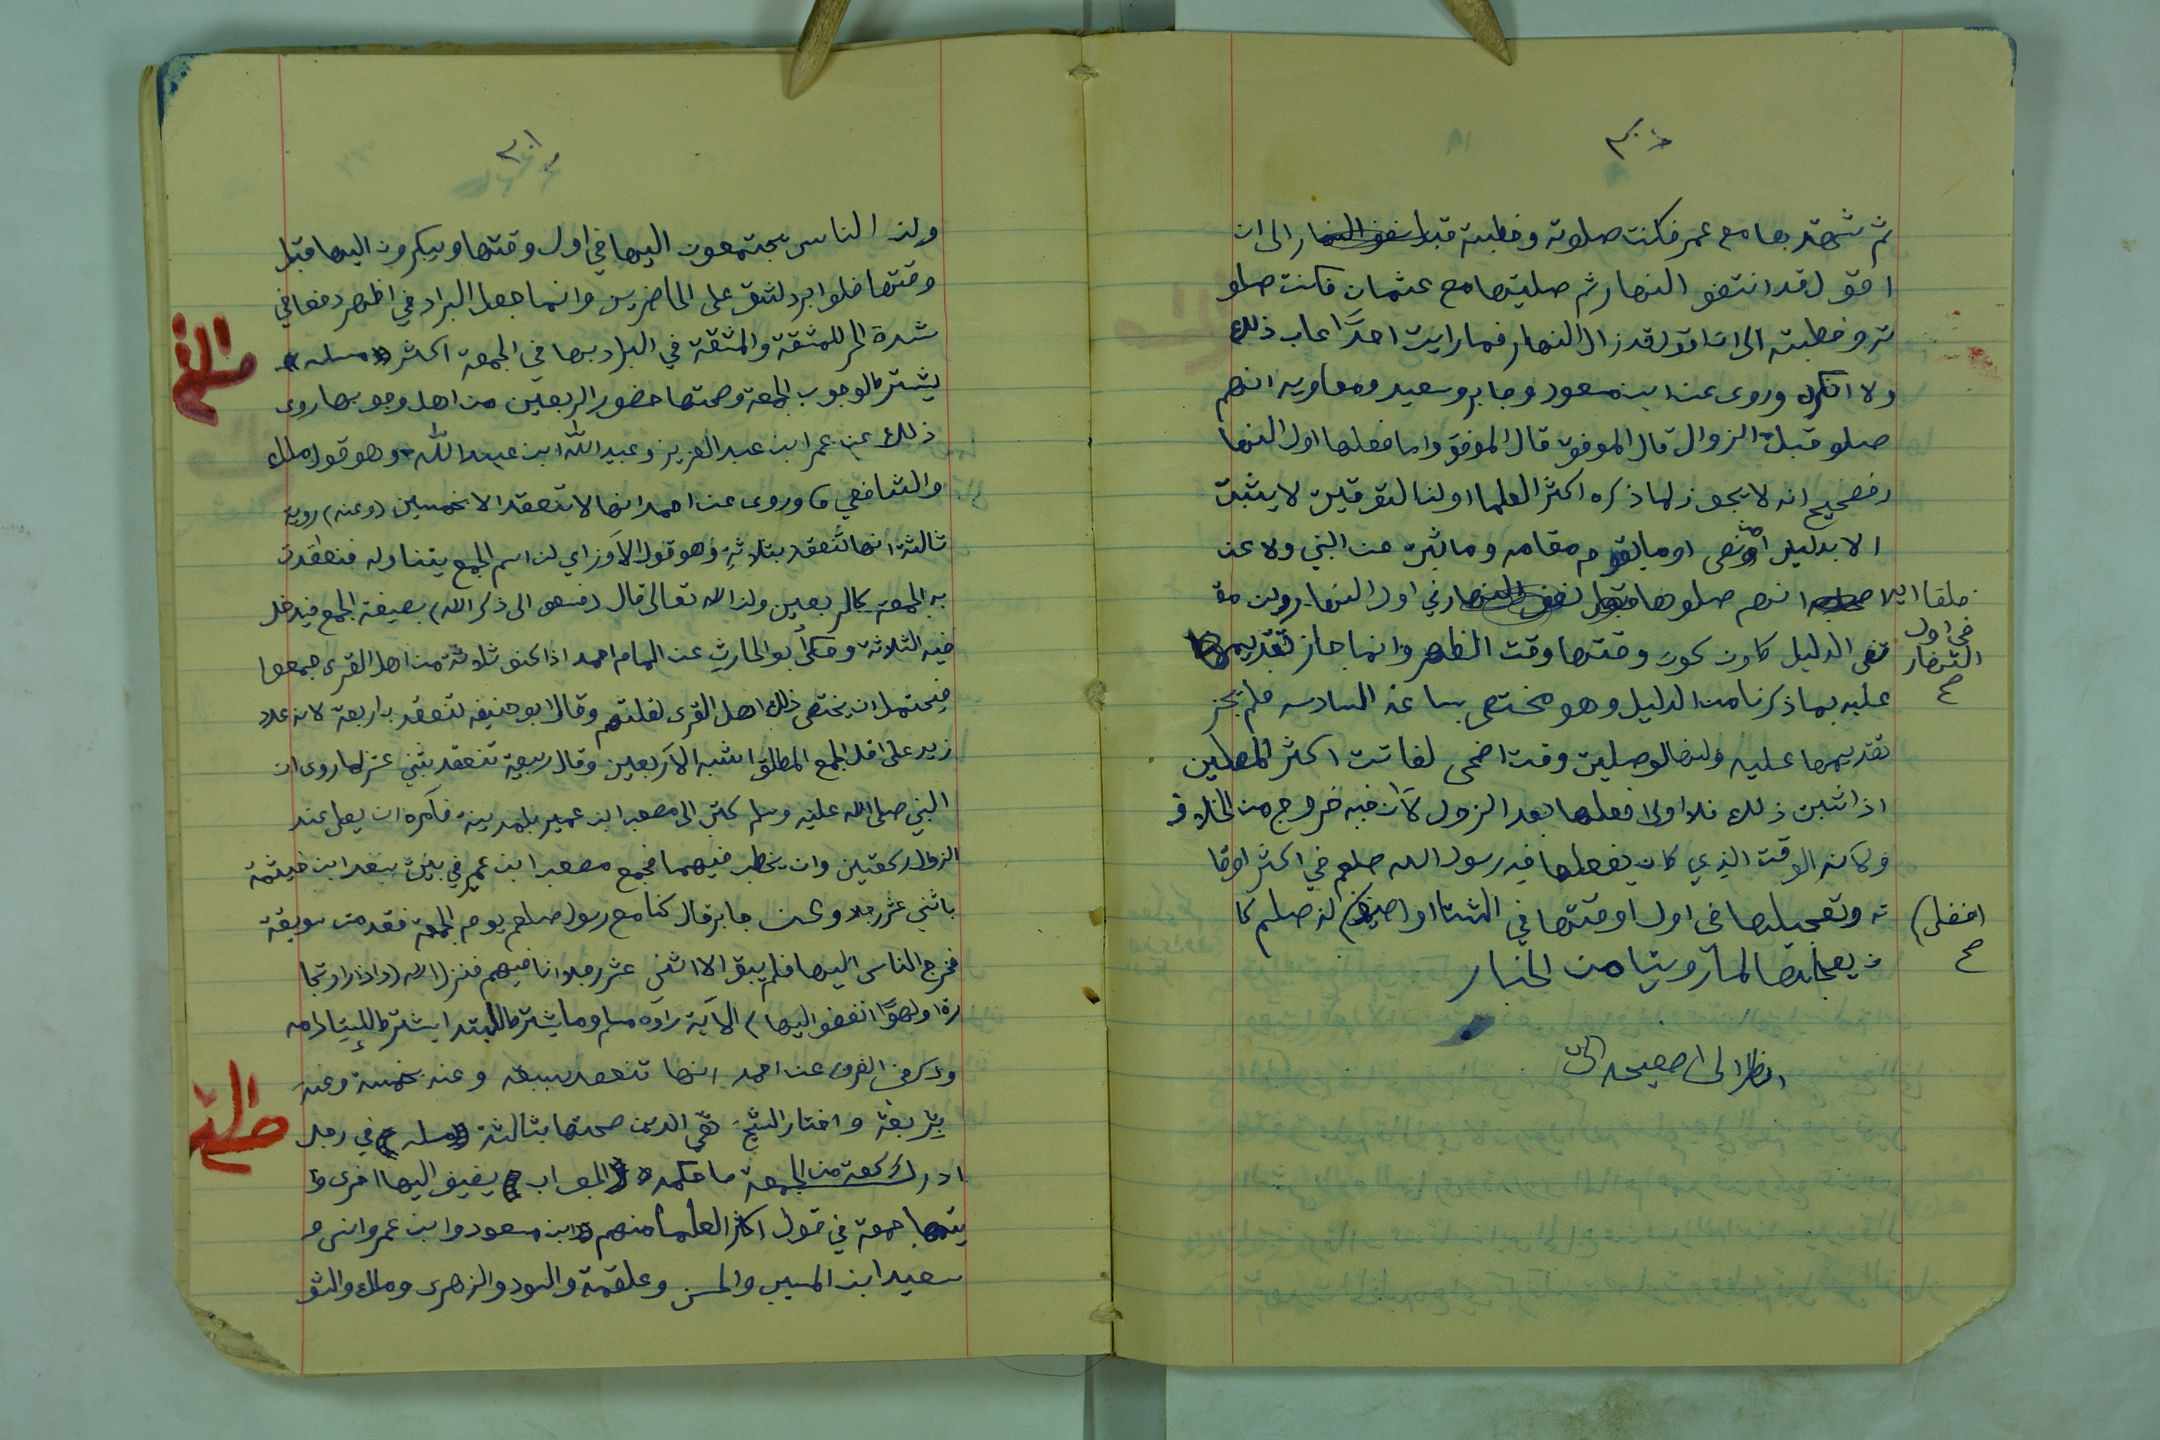 ثم شهدتها مع عمر فكنت صلاته وخطبته قبل نصف النهار الى ان
اقول قد انتصف النهار ثم صليتها مع عثمان فكنت صلو
ته وخطبته الى ان اقول قد زال النهار فما رايت احدًا عاب ذلك
ولا انكره وروى عن ابن مسعود وجابر وسعيد ومعاويه انهم
صلو قبل الزوال قال الموفق قال الموفق واما فعلها اول النها
ر فصحيح انه لا يجوز لما ذكره اكثر العلما اولنا لتوقيت لا يثبت
الا بدليل من نص او ما يقوم مقامه وما ثبت عن النبي ولا عن
خلفا ايه انهم صلوها في اول النهار ولن مق
في اول
النهار
صح
تضى الدليل كان كون وقتها وقت الظهر وانما جاز تقديمها
عليه بما ذكرنا من الدليل وهو مختص بسا عة السادسه فلم يجز
تقديمها عليه ولنها لو صليت وقت اضحى لفاتت اكثر المصلين
اذا ثبت ذلك فلا ولى فعلها بعد الزول لأن فيه خروج من الخلاف
ولانه الوقت الذي كان يفعلها فيه رسول الله صلعم في اكثر اوقا
ته وتعجيلها في اول اوقتها في الشتا او اصيف لنه صلعم كا
افضل)
صح
ن يعجلها لما روينا من الخبار
انظر الى اصفيحه
ولن الناس يجتمعون اليها في اول وقتها ويبكرون اليها قبل
وقتها فلو ابرد لشق على الحاضرين وانما جعل البراد في اظهر دفعا في
شدة الحر للمشقة والمشقة في البراد بها في الجمعة اكثر مسله
يشترط لوجوب الجمعة وصحتها حضور الربعين من اهل وجوبها روى
ذلك عن عمر ابن عبد العزيز وعبيد الله ابن عبد الله وهو قول مالك
والشافعي وروى عن احمد انها لا تنعقد الا بخمسين (وعنه) روية
ثالثة انها تنعقد بثلاثةٍ وهو قول الأوزاي لن اسم الجمع يتناوله فنعقدت
به الجمعة كالربعين ولن الله تعالى قال (فسعو الى ذكر الله) بصيغة الجمع فيدخل
فيه الثلاثة وحكى أبو الحارث عن المام احمد اذا كنو ثلوثة من اهل القرى جمعوا
فيحتمل ان يختص ذلك اهل القرى لقلتهم وقال ابو حنيفه تنعقد بأربعة لانه عدد
زيد على اقل الجمع المطلق اشبه الأربعين وقال ربيعة تنعقد بثني عشر لما روى ان
النبي صلى الله عليه وسلم كتب الى مصعب ابن عمير بالمدينة فأمره ان يصل عند
الزوال ركعتين وان يخطب فيهما فجمع مصعب ابن عمير في بيت سعد ابن خيثمة
باثني عشر رجلا وعن جابر قال كنا مع رسول صلعم يوم الجمعة فقدمت سويقة
فخرج الناس اليها فلم يبقا الا اثنى عشر رجلا وانا فيهم فنزل الله (واذا راو تجا
رة او لهوًا انفضو اليها) الأية رأوه مسلم وما يشترط للبتدا يشترط للإستدامه
وذكر في الفرى عن احمد انها تنعقد بسبعه وعنه بخمسة وعنه
بربعة واختار الشيخ تقى الدين صحتها بثالثة مسله في رجل
ادرك ركعة من الجمعة ما حكمه الجواب يضيف اليها اخرى وا
يتمها جمعة في قول اكثر العلما منهم ابن مسعود وابن عمر وانس و
سعيد ابن المسيب والحسن وعلقمة والسود والزهرى ومالك والثو